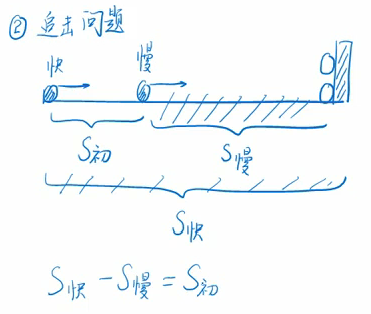 ② 追击问题
快 慢
S初 S慢
S快
S快 - S慢 = S初